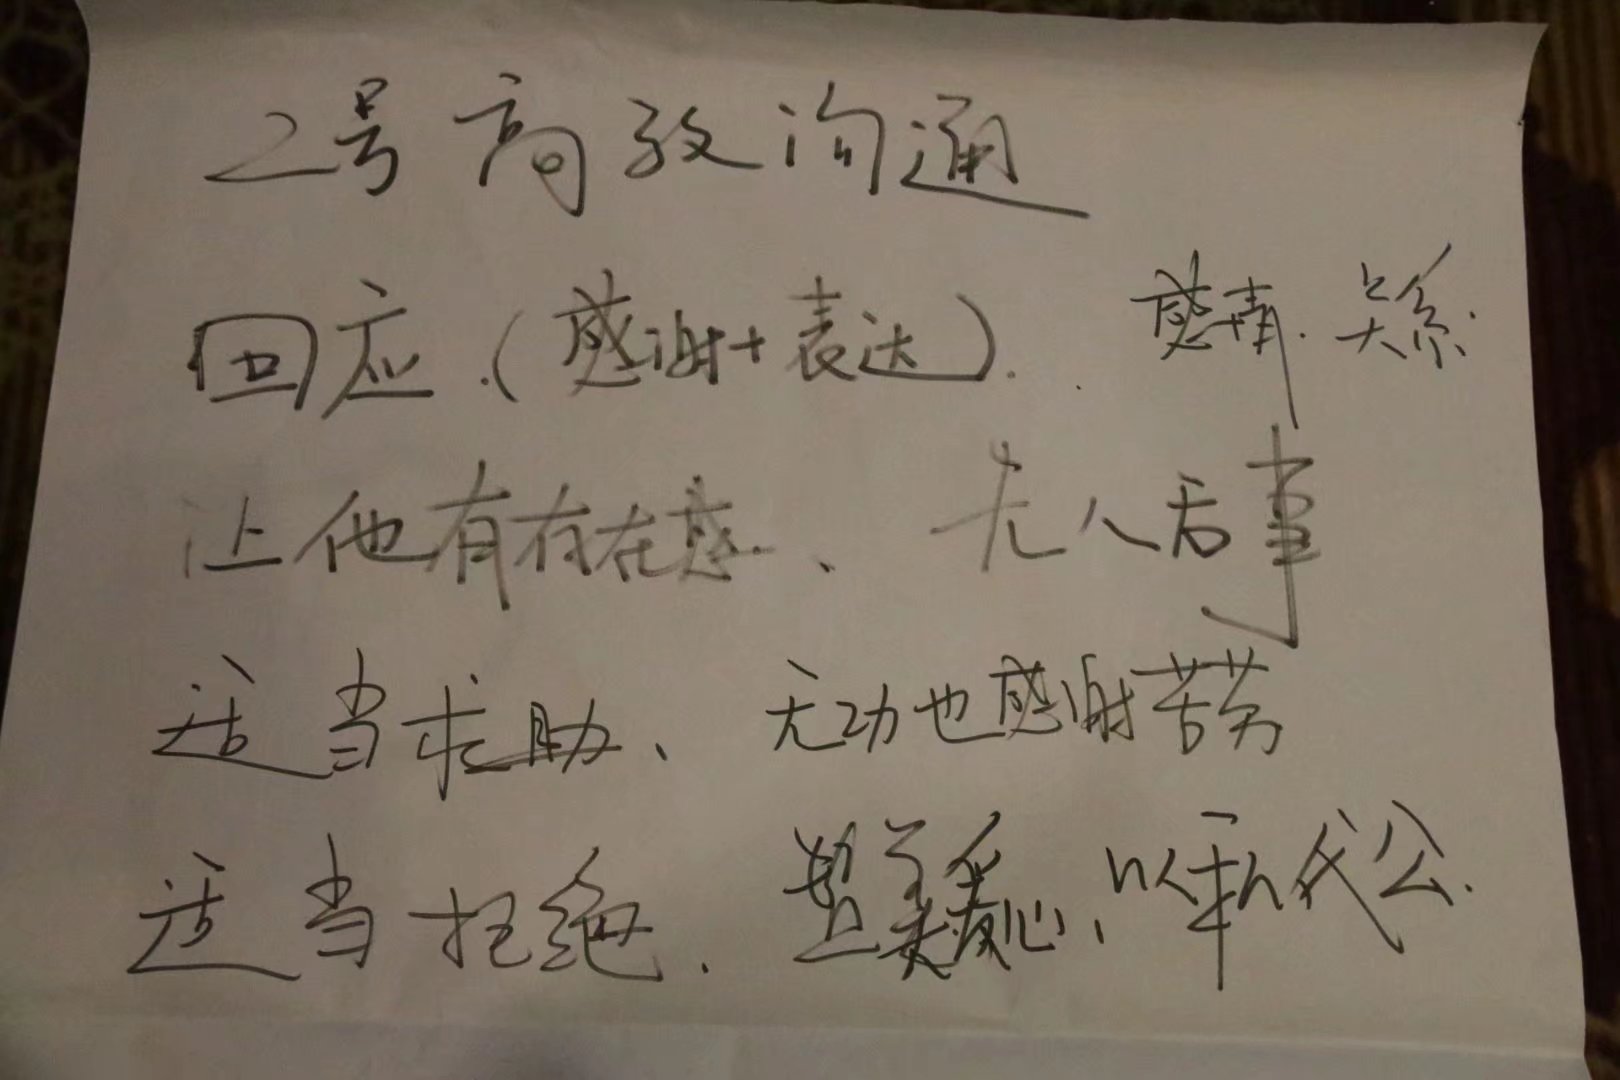 2号高效沟通
回应.(感谢+表达). 感情.关系.
让他有存在感、 先人后事
适当求助、 无功也感谢苦劳
适当拒绝. 爱心、以私代公.